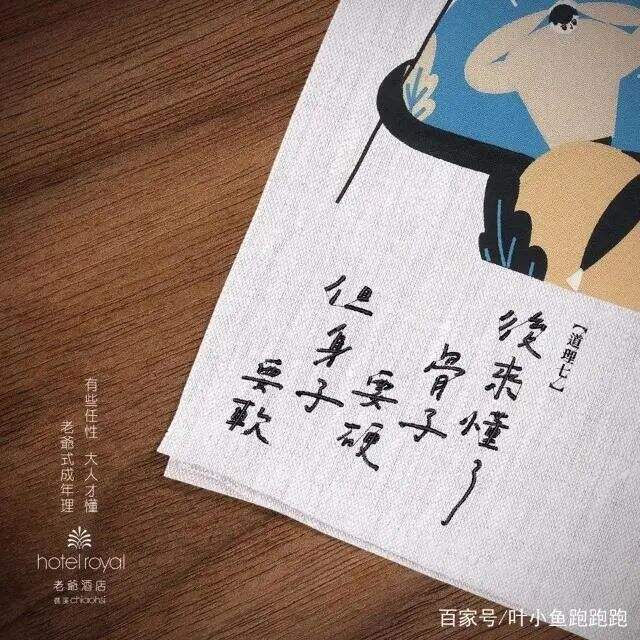 【道理七】
後來懂了
骨子
要硬
但身子
要軟
有些任性 大人才懂
老爺式成年理
hotel royal
老爺酒店
礁溪 chiaohsi
百家号/叶小鱼跑跑跑